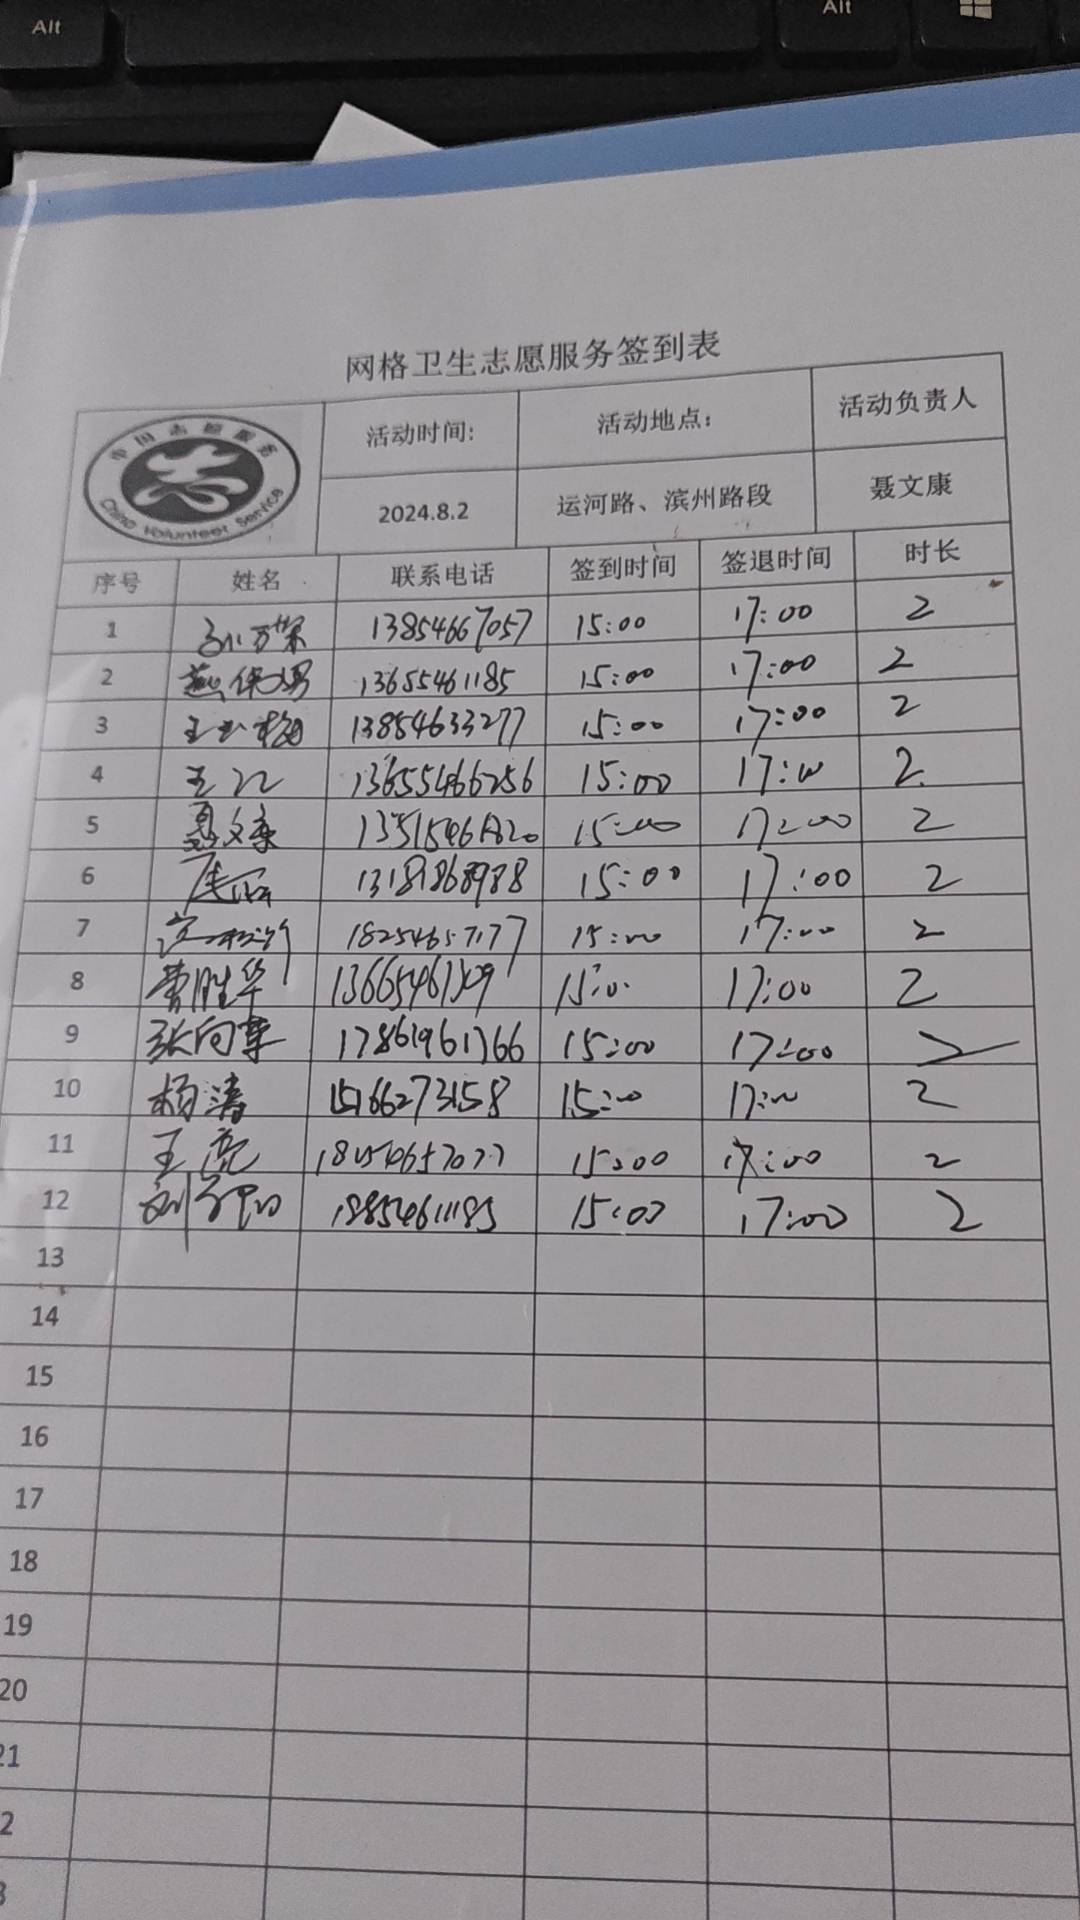 Alt
Alt
网格卫生志愿服务签到表
中国志愿服务
China Volunteer Service
活动时间: 活动地点: 活动负责人
2024.8.2 运河路、滨州路段 聂文康
序号 姓名 联系电话 签到时间 签退时间 时长
1 13854667057 15:00 17:00 2
2 13655461185 15:00 17:00 2
3 王玉梅 13854633277 15:00 17:00 2
4 王 13655466256 15:00 17:00 2
5 聂文康 15:00 17:00 2
6 15:00 17:00 2
7 18254657177 15:00 17:00 2
8 曹胜华 15:00 17:00 2
9 张向 17861961766 15:00 17:00 2
10 杨涛 15166273158 15:00 17:00 2
11 王亮 15:00 17:00 2
12 刘 15:00 17:00 2
13
14
15
16
17
18
19
20
21
2
3